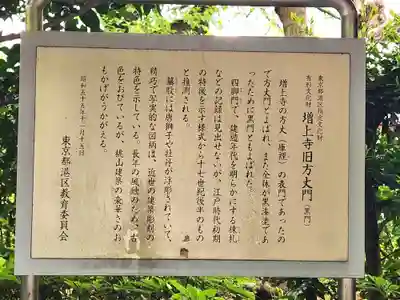 東京都港区指定文化財
有形文化財 増上寺旧方丈門(黒門)
増上寺の方丈(庫裡)の表門であったの
で方丈門とよばれ、また全体が黒漆塗であ
ったために黒門ともよばれた。
四脚門で、建造年代を明らかにする棟札
などの記録は見出せないが、江戸時代初期
の特徴を示す様式から十七世紀後半のもの
と推測される。
蟇股には唐獅子や牡丹が浮彫されていて、
精巧で写実的な図柄は、近世の建築彫刻の
特色を示している。長年の風蝕のため、古
色をおびているが、桃山建築の豪華さのお
もかげがうかがえる。
昭和五十五年十一月十五日
東京都港区教育委員会